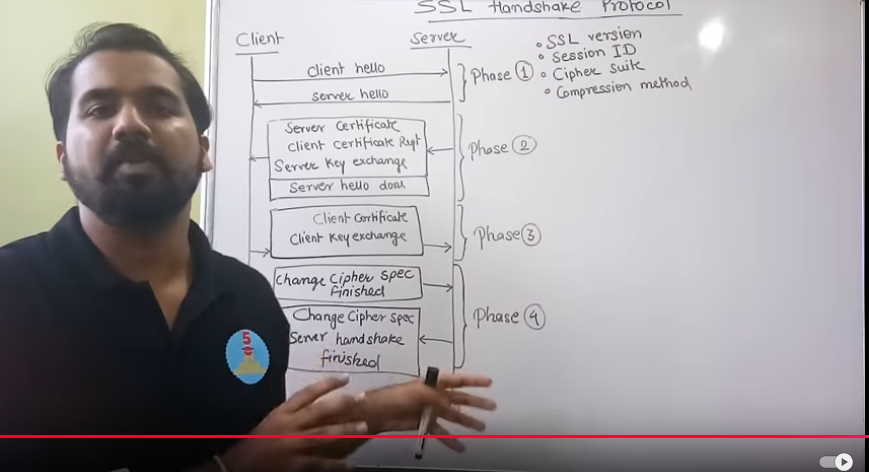 SSL Handshake Protocol
Client
Server
client hello
server hello
Phase 1
SSL version
Session ID
Cipher suit
Compression method
Server Certificate
Client Certificate Reqt
Server Key exchange
Server hello done
Phase 2
Client Certificate
Client Key exchange
Phase 3
Change Cipher spec
finished
Change Cipher spec
Server handshake
finished
Phase 4
5